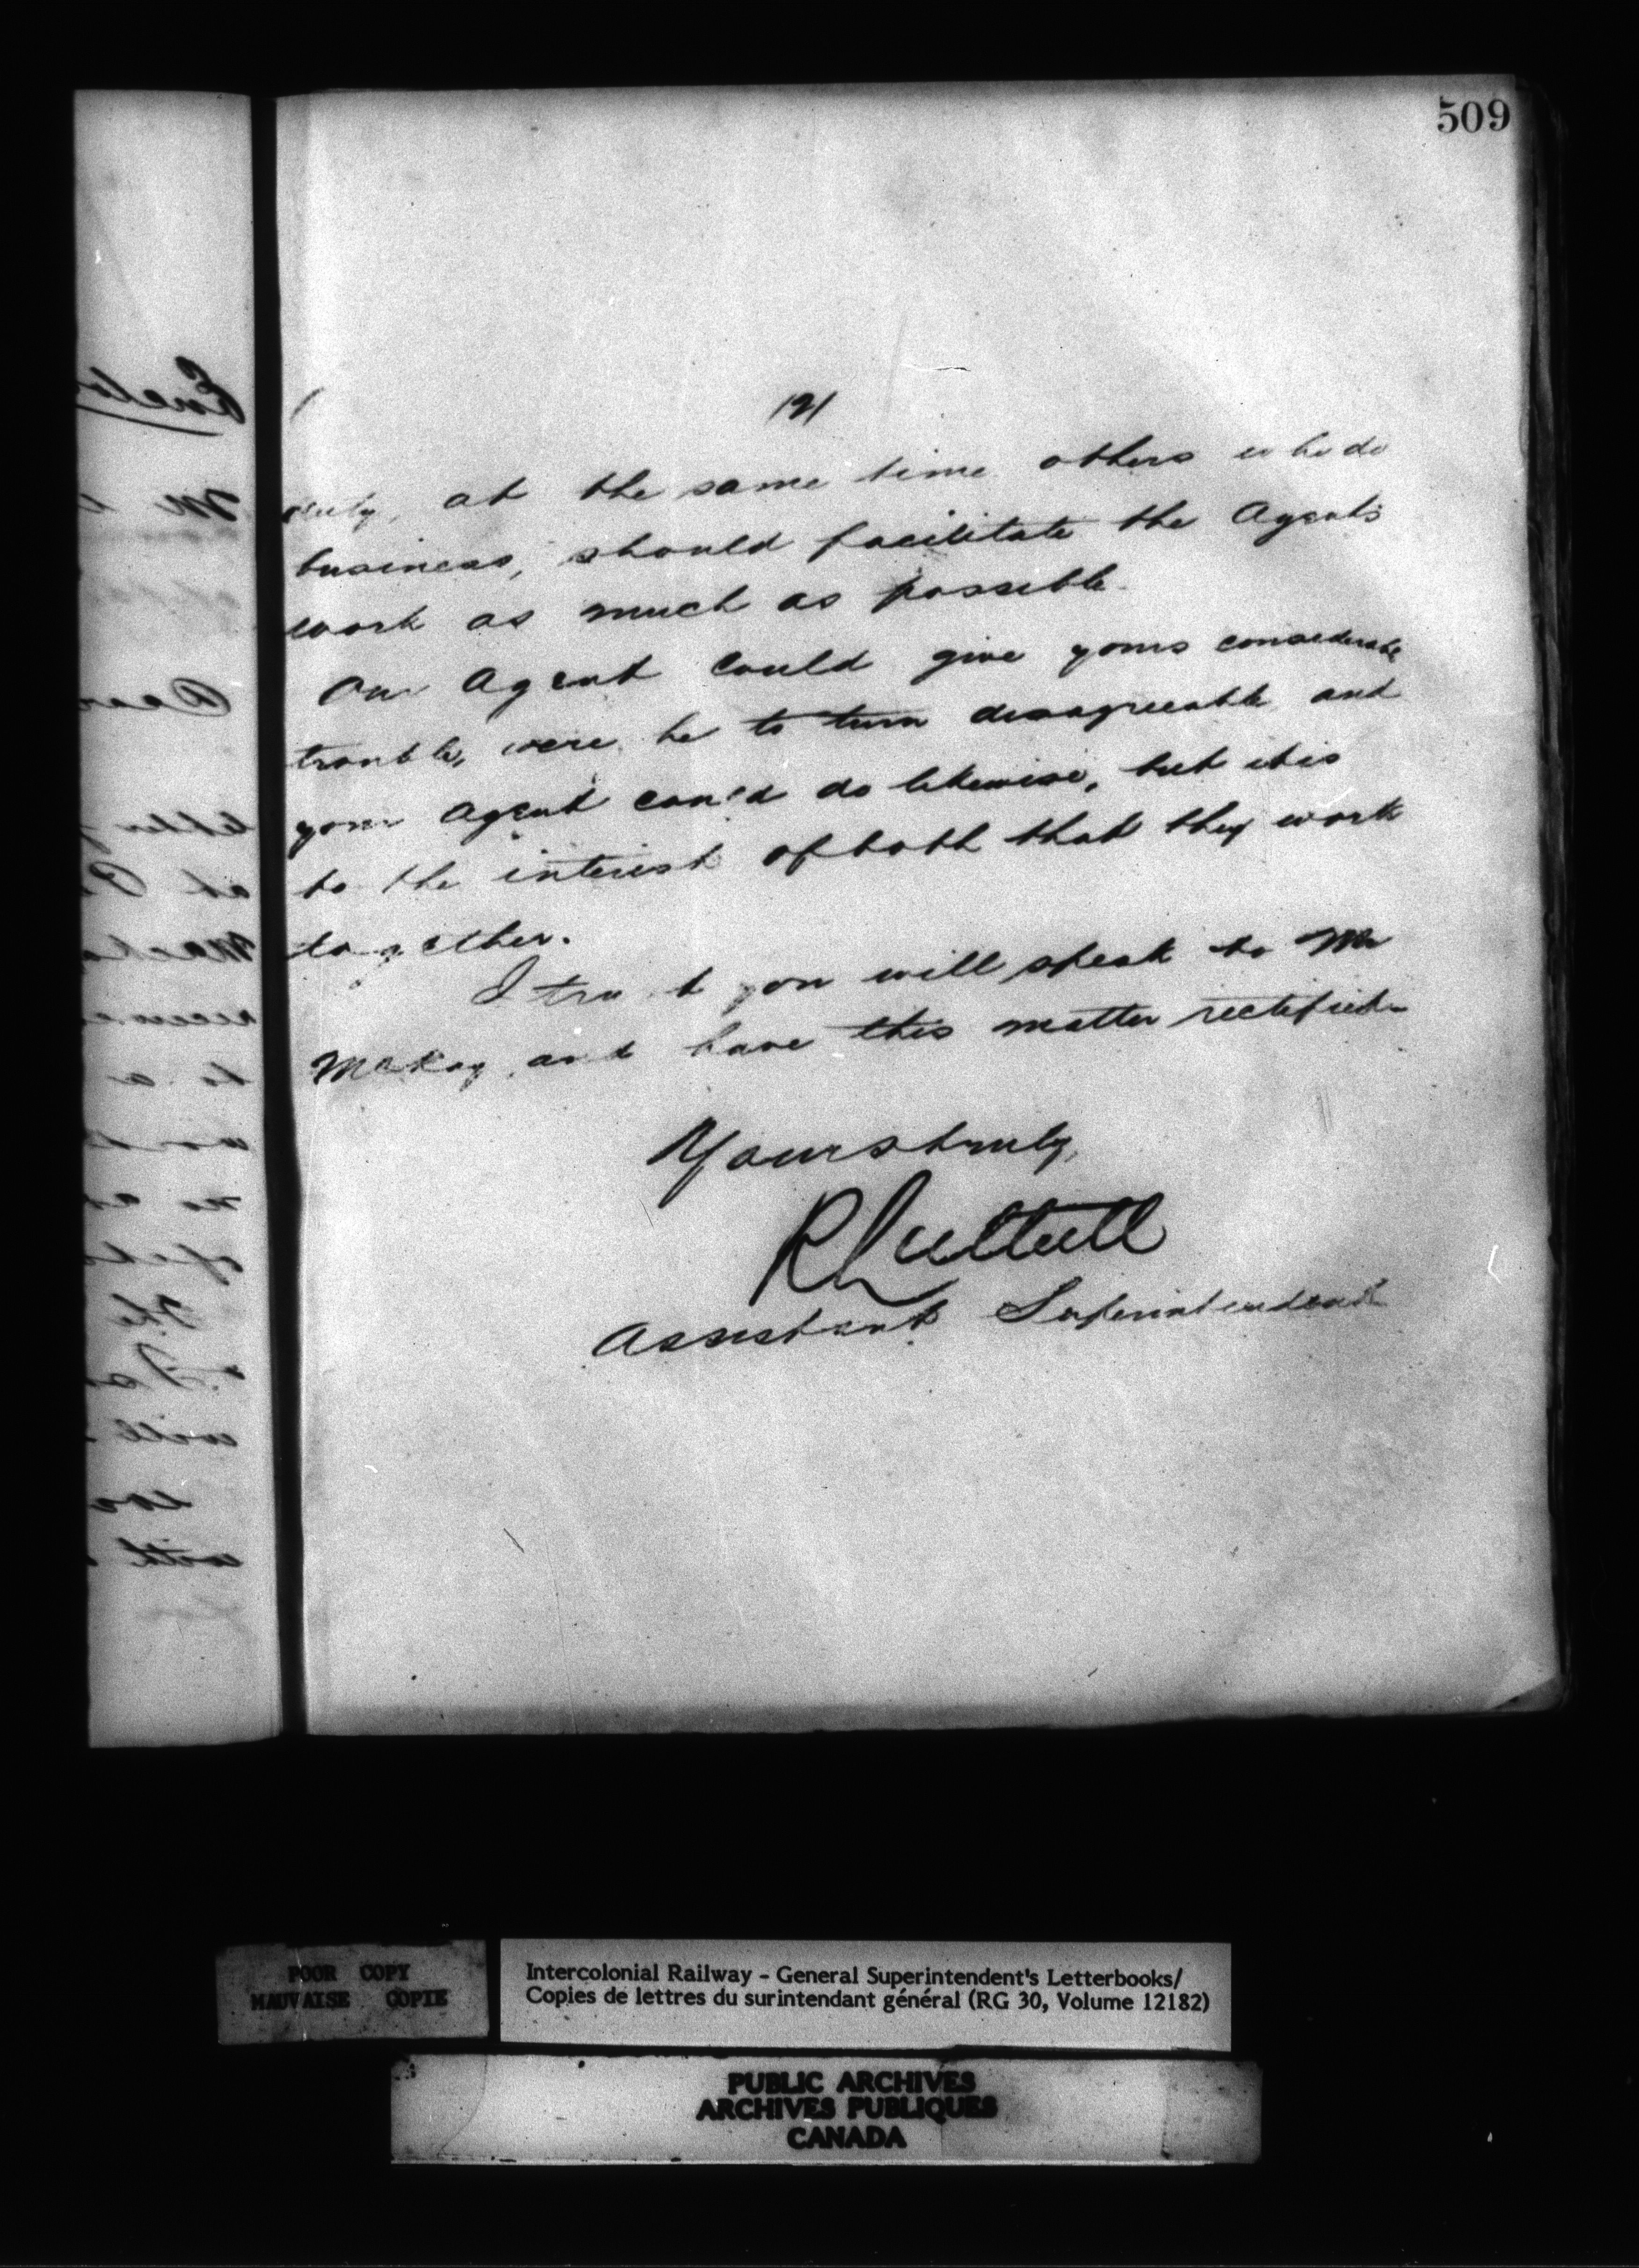 509
/2/
duty, at the same time others who do
business, should facilitate the Agents
work as much as possible.
Our Agent could give yours considerable
trouble, were he to turn disagreeable and
your Agent could do likewise, but it is
to the interest of both that they work
together.
I trust you will speak to Mr
McKay and have this matter rectified.
Yours truly,
R Luttrell
Assistant Superintendent
POOR COPY
MAUVAISE COPIE
Intercolonial Railway - General Superintendent's Letterbooks/
Copies de lettres du surintendant général (RG 30, Volume 12182)
PUBLIC ARCHIVES
ARCHIVES PUBLIQUES
CANADA